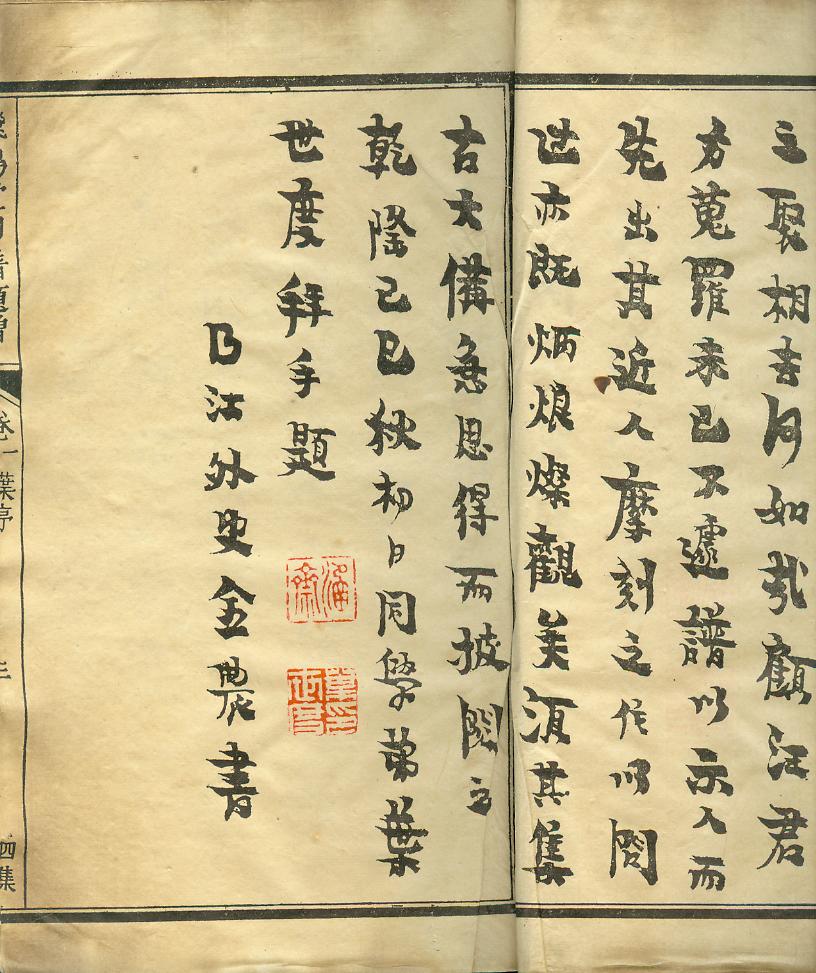 之聚相去何如哉顧汪君
方蒐羅未已不遽譜以示人而
先出其近人摩刻之作以問
世亦既炳烺燦觀矣須其集
古大備急思得而披閱之
乾隆己巳秋初日同學弟葉
世度拜手題
曲江外史金農書
葉印世度
卷一
四集